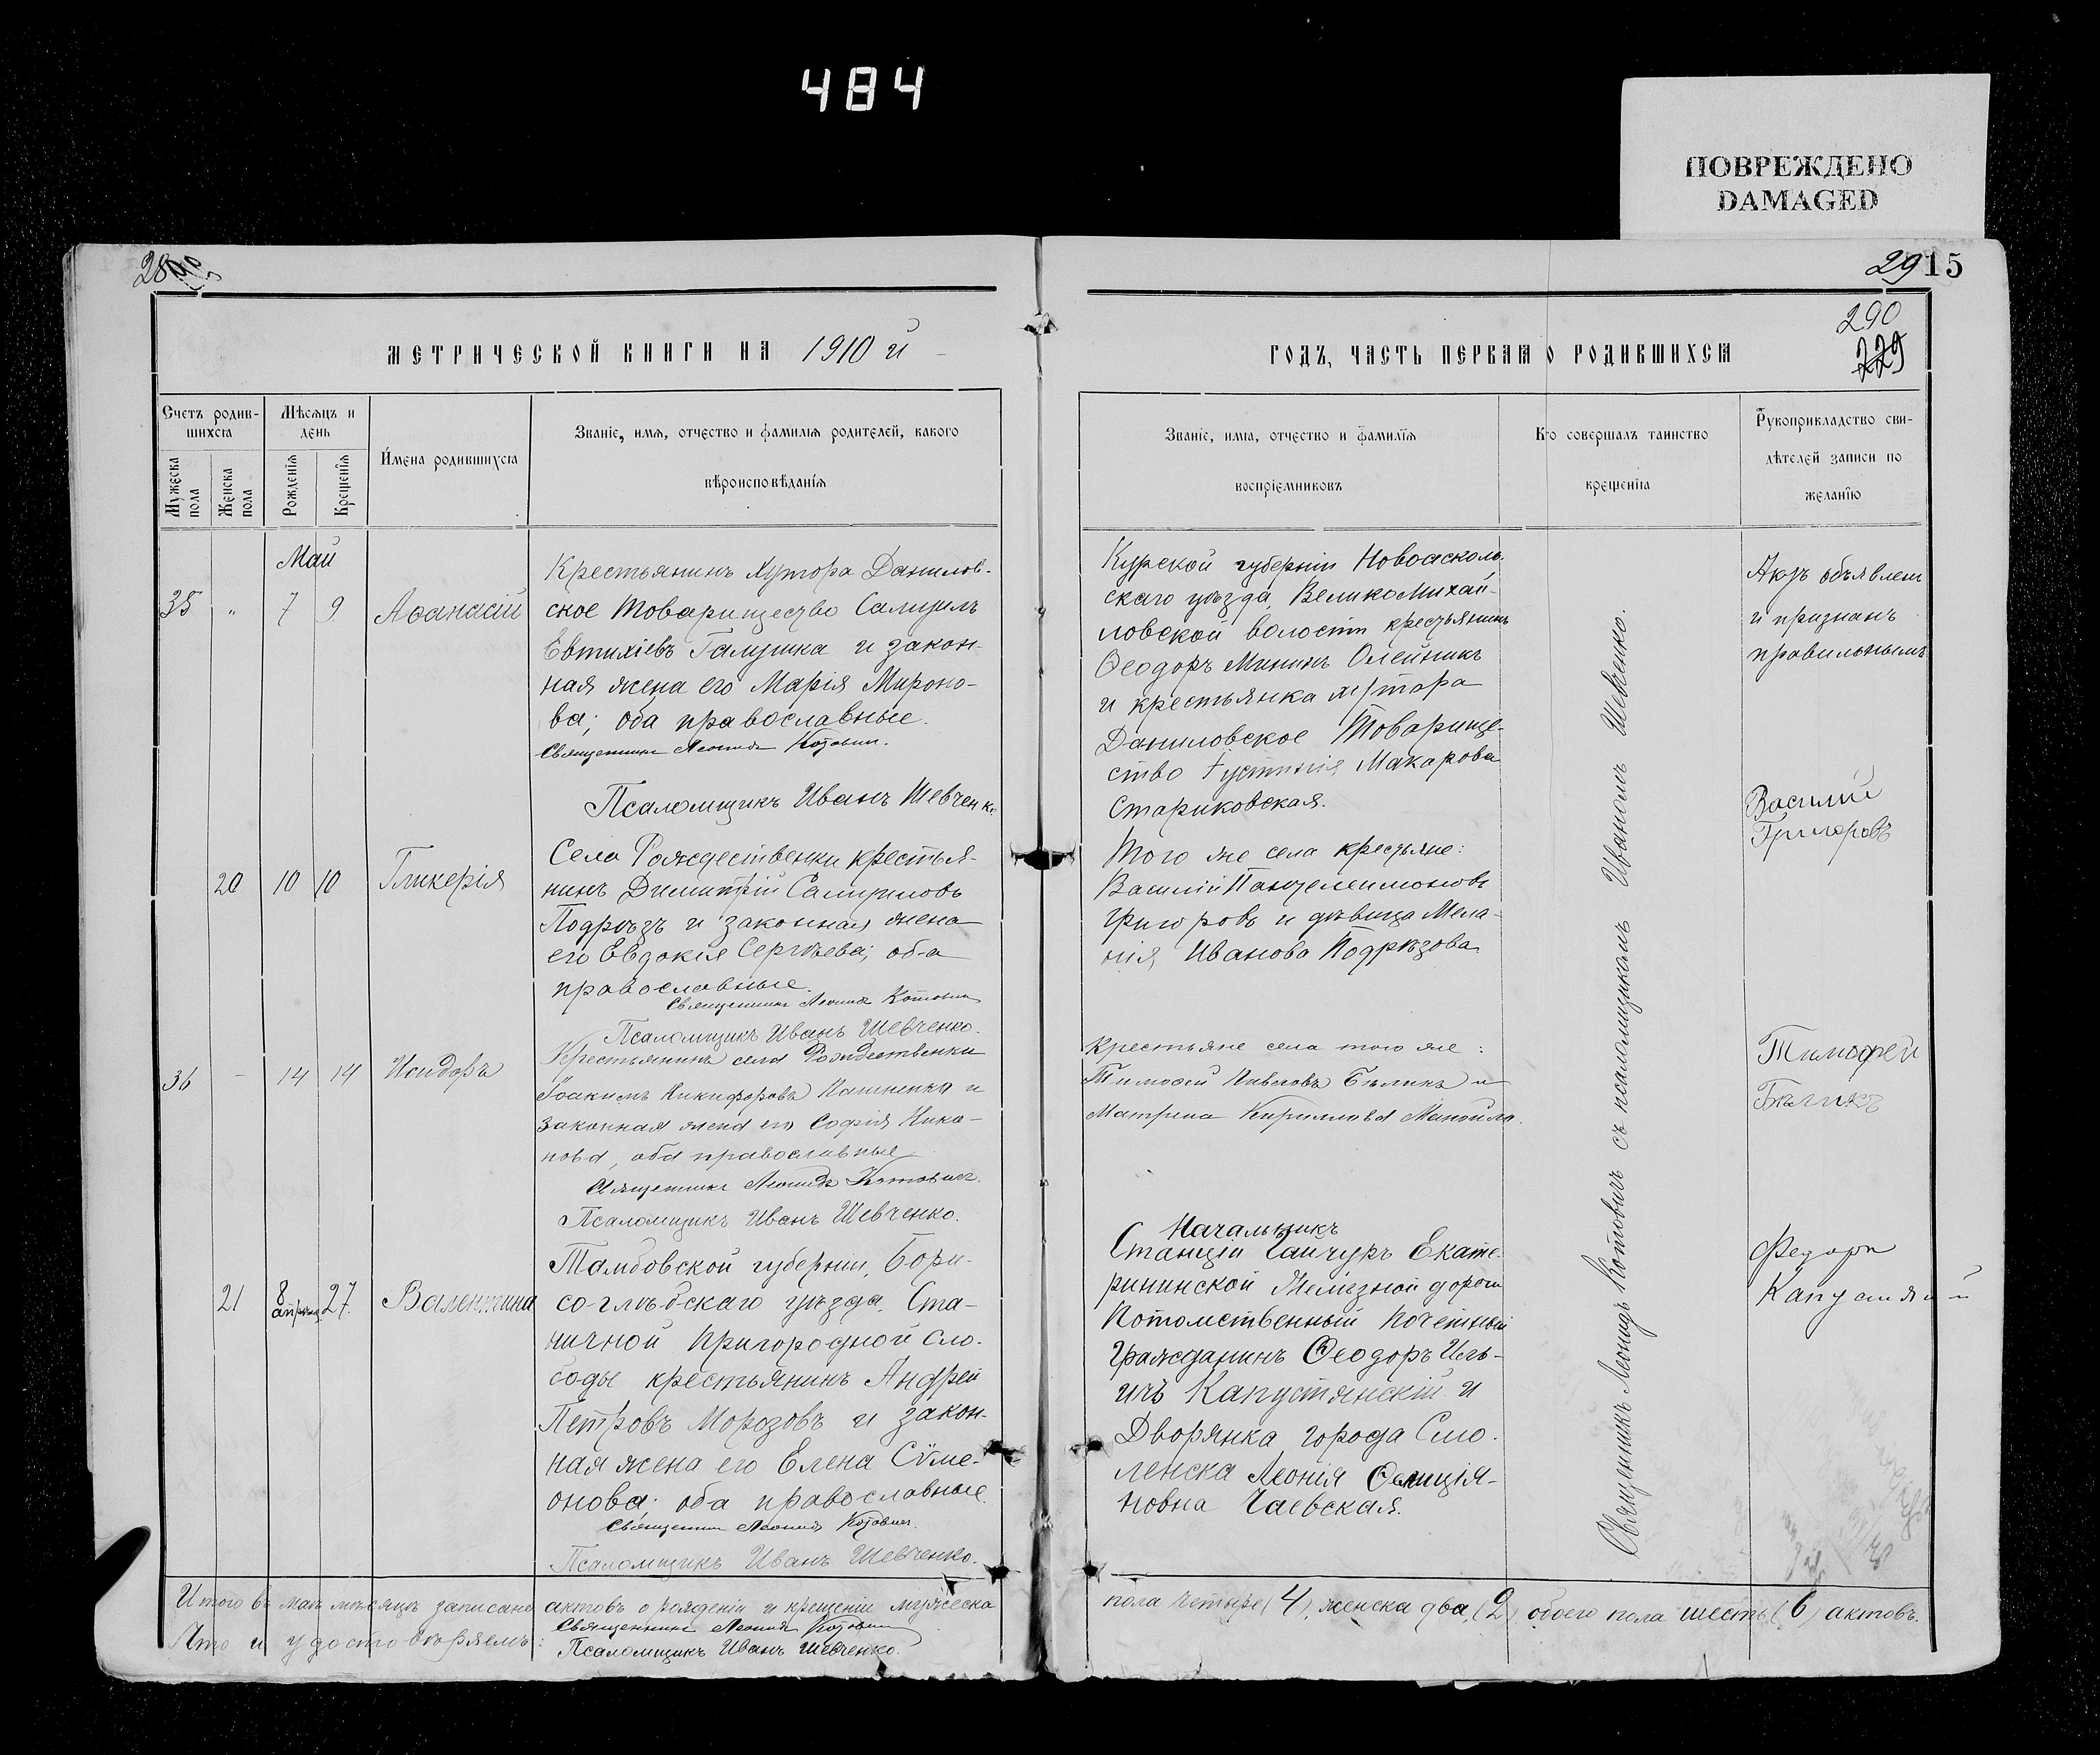 484
ПОВРЕЖДЕНО
DAMAGED
28
29 15
290
229
МЕТРИЧЕСКОЙ КНИГИ НА 1910 й
ГОДЪ, ЧАСТЬ ПЕРВАЯ О РОДИВШИХСЯ
Счетъ родив-
шихся
Мужеска пола
Женска пола
Мѣсяцъ и
день
Рожденія
Крещенія
Имена родившихся
Званіе, имя, отчество и фамилія родителей, какого
вѣроисповѣданія
Званіе, имя, отчество и фамилія
воспріемниковъ
Кто совершалъ таинство
крещенія
Рукоприкладство сви-
дѣтелей записи по
желанію
Май
35 " 7 9 Аѳанасій
Крестьянинъ хутора Данилов-
ское Товарищество Самуилъ
Евтихіевъ Галушка и закон-
ная жена его Марія Мироно-
ва; оба православные.
Священникъ Леонидъ Котовичъ.
Псаломщикъ Иванъ Шевченко
Курской губерніи Новоосколь-
скаго уѣзда, ВеликоМихай-
ловской волости крестьянинъ
Ѳеодоръ Мининъ Олейникъ
и крестьянка хутора
Даниловское Товарище-
ство Іустинія Макарова
Стариковская.
Актъ объявленъ
и признанъ
правильнымъ
20 10 10 Гликерія
Села Рождественки крестья-
нинъ Димитрій Самуиловъ
Подрѣзъ и законная жена
его Евдокія Сергѣева; оба
православные.
Священникъ Леонидъ Котовичъ
Псаломщикъ Иванъ Шевченко.
Того же села крестьяне:
Василій Пантелеимоновъ
Григоровъ и дѣвица Мела-
нія Иванова Подрѣзова
Василий
Григоровъ
36 - 14 14 Исидоръ
Крестьянинъ села Рождественки
Іоакимъ Никифоровъ и
законная жена его Софія Нико-
нова, оба православные
Священникъ Леонидъ Котовичъ.
Псаломщикъ Иванъ Шевченко.
Крестьяне села того же:
Тимоѳей Бѣликъ и
Матрена Кириллова
Тимофей
Бѣликъ
21 8 апрѣля 27. Валентина
Тамбовской губерніи, Бори-
со-глѣбскаго уѣзда, Ста-
ничной Пригородной Сло-
боды крестьянинъ Андрей
Петровъ Морозовъ и закон-
ная жена его Елена Сѵме-
онова; оба православные.
Священникъ Леонидъ Котовичъ.
Псаломщикъ Иванъ Шевченко.
Начальникъ
Станціи Гайчуръ Екате-
рининской Желѣзной дороги
Потомственный Почетный
Гражданинъ Ѳеодоръ Иль-
ичъ Капустянскій и
Дворянка города Смо-
ленска Леонія Фелиція-
новна Чаевская.
Федоръ
Священникъ Леонидъ Котовичъ съ псаломщикомъ Иваномъ Шевченко.
Итого въ маѣ мѣсяцѣ записано актовъ о рожденіи и крещеніи мужеска
пола четыре (4), женска два, (2) обоего пола шесть (6) актовъ.
Что и удостовѣряемъ:
Священникъ Леонидъ Котовичъ
Псаломщикъ Иванъ Шевченко.